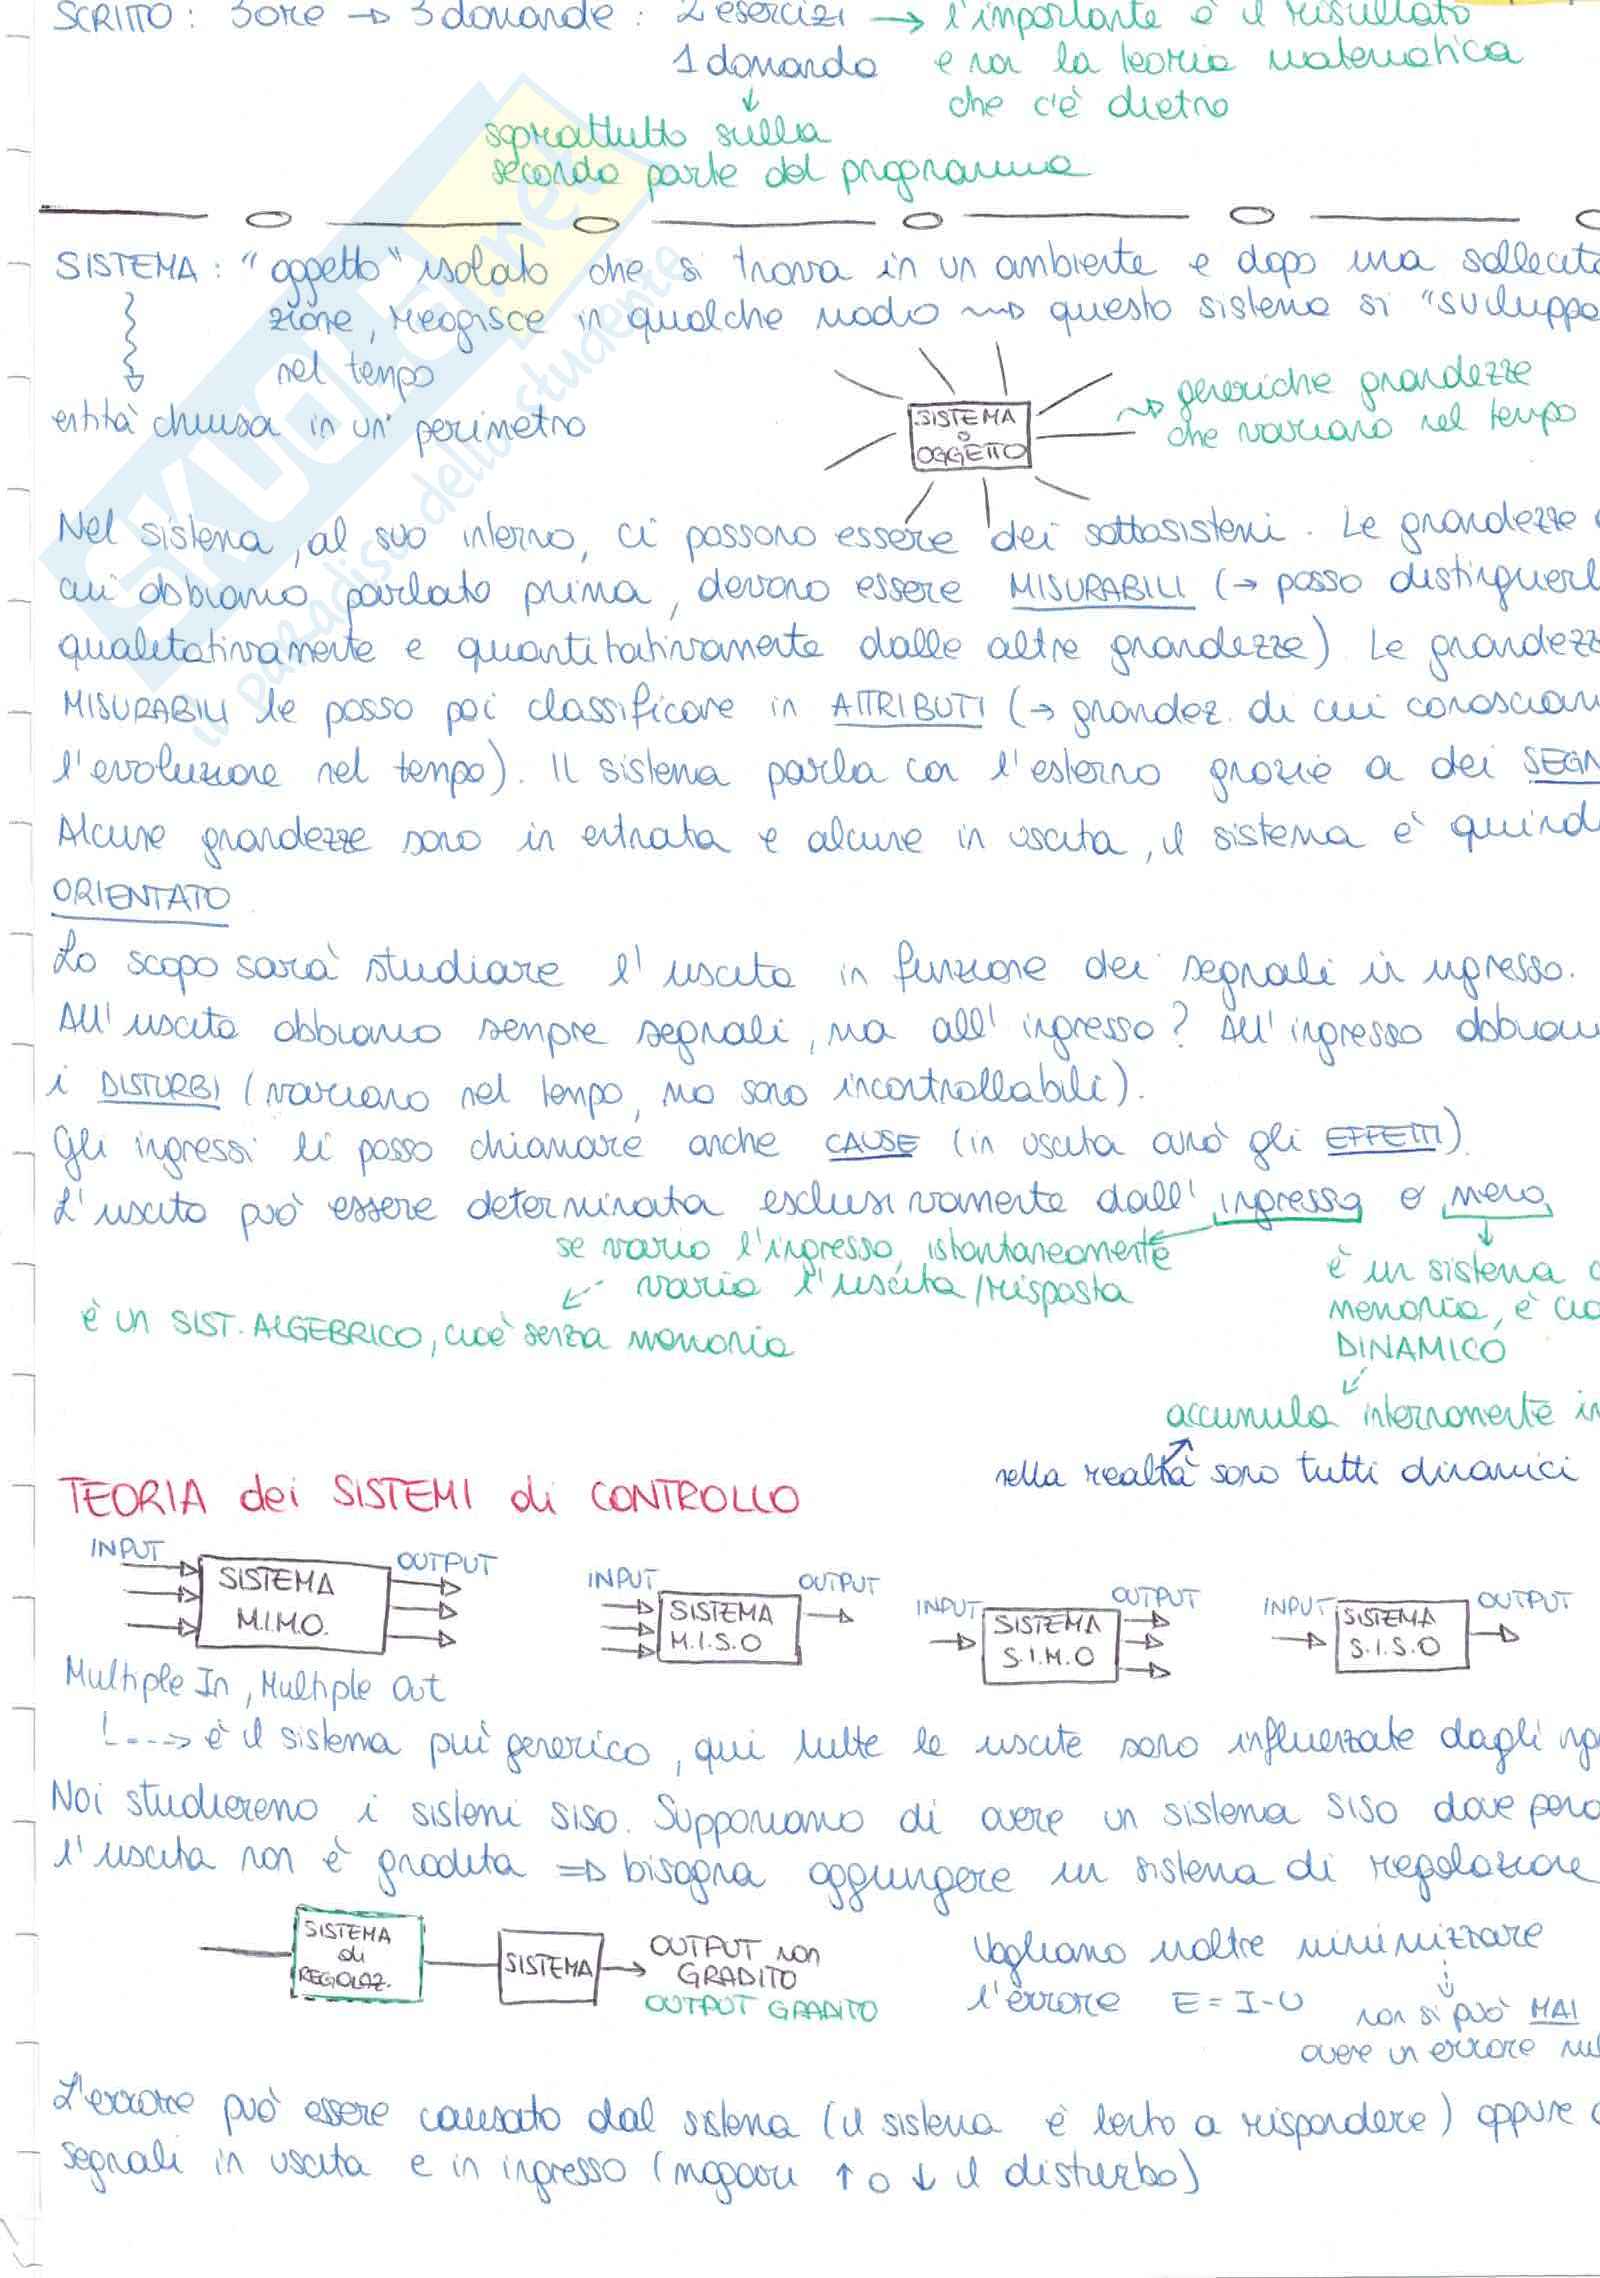 SCRITTO: 3 ore → 3 domande: 2 esercizi → l'importante è il risultato
1 domanda e non la teoria matematica
che c'è dietro
soprattutto sulla
seconda parte del programma
SISTEMA: "oggetto" isolato che si trova in un ambiente e dopo una sollecita
zione, reagisce in qualche modo ~> questo sistema si "sviluppa
nel tempo
entità chiusa in un perimetro
SISTEMA
o
OGGETTO
~> generiche grandezze
che variano nel tempo
Nel sistema, al suo interno, ci possono essere dei sottosistemi. Le grandezze
cui abbiamo parlato prima, devono essere MISURABILI (→ posso distinguerl
qualitativamente e quantitativamente dalle altre grandezze). Le grandezz
MISURABILI le posso poi classificare in ATTRIBUTI (→ grandez. di cui conosciam
l'evoluzione nel tempo). Il sistema parla con l'esterno grazie a dei SEGN
Alcune grandezze sono in entrata e alcune in uscita, il sistema è quind
ORIENTATO
Lo scopo sarà studiare l'uscita in funzione dei segnali in ingresso.
All'uscita abbiamo sempre segnali, ma all'ingresso? All'ingresso abbiam
i DISTURBI (variano nel tempo, ma sono incontrollabili).
Gli ingressi li posso chiamare anche CAUSE (in uscita avrò gli EFFETTI).
L'uscita può essere determinata esclusivamente dall'ingresso o meno
se vario l'ingresso, istantaneamente
varia l'uscita/risposta
è un SIST. ALGEBRICO, cioè senza memoria
è un sistema c
memoria, è cio
DINAMICO
accumula internamente in
nella realtà sono tutti dinamici
TEORIA dei SISTEMI di CONTROLLO
INPUT SISTEMA M.I.M.O. OUTPUT
INPUT SISTEMA M.I.S.O OUTPUT
INPUT SISTEMA S.I.M.O OUTPUT
INPUT SISTEMA S.I.S.O OUTPUT
Multiple In, Multiple Out
è il sistema più generico, qui tutte le uscite sono influenzate dagli ing
Noi studieremo i sistemi SISO. Supponiamo di avere un sistema SISO dove però
l'uscita non è gradita => bisogna aggiungere un sistema di regolazione
SISTEMA
di
REGOLAZ.
SISTEMA
OUTPUT non
GRADITO
OUTPUT GRADITO
Vogliamo inoltre minimizzare
l'errore E = I-U
non si può MAI
avere un errore nul
L'errore può essere causato dal sistema (il sistema è lento a rispondere) oppure d
segnali in uscita e in ingresso (magari ↑ o ↓ il disturbo)
SKUOLA.net
il paradiso dello studente